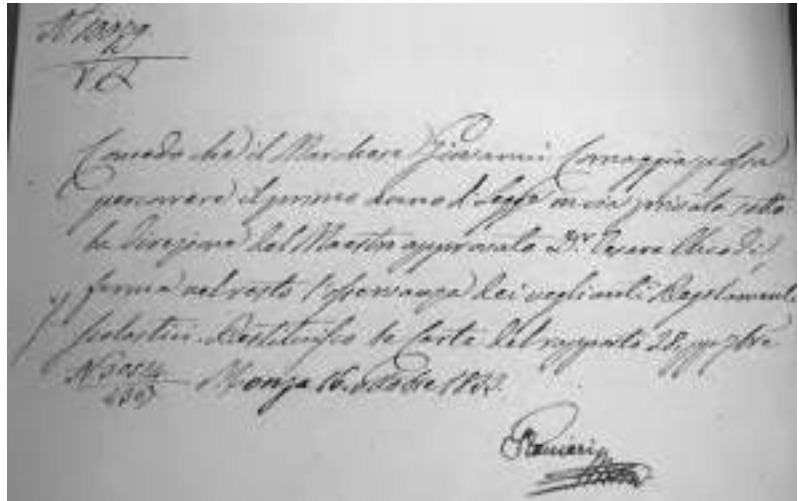 Concedo che il Marchese Giovanni Cornaggia possa
percorrere il primo anno di Legge in via privata sotto
la direzione del Maestro approvato Dr. Cesare
ferma nel resto l'osservanza dei veglianti Regolamenti
scolastici. Restituisco le Carte del rapporto 28
Monza 16. ottobre
Ranieri